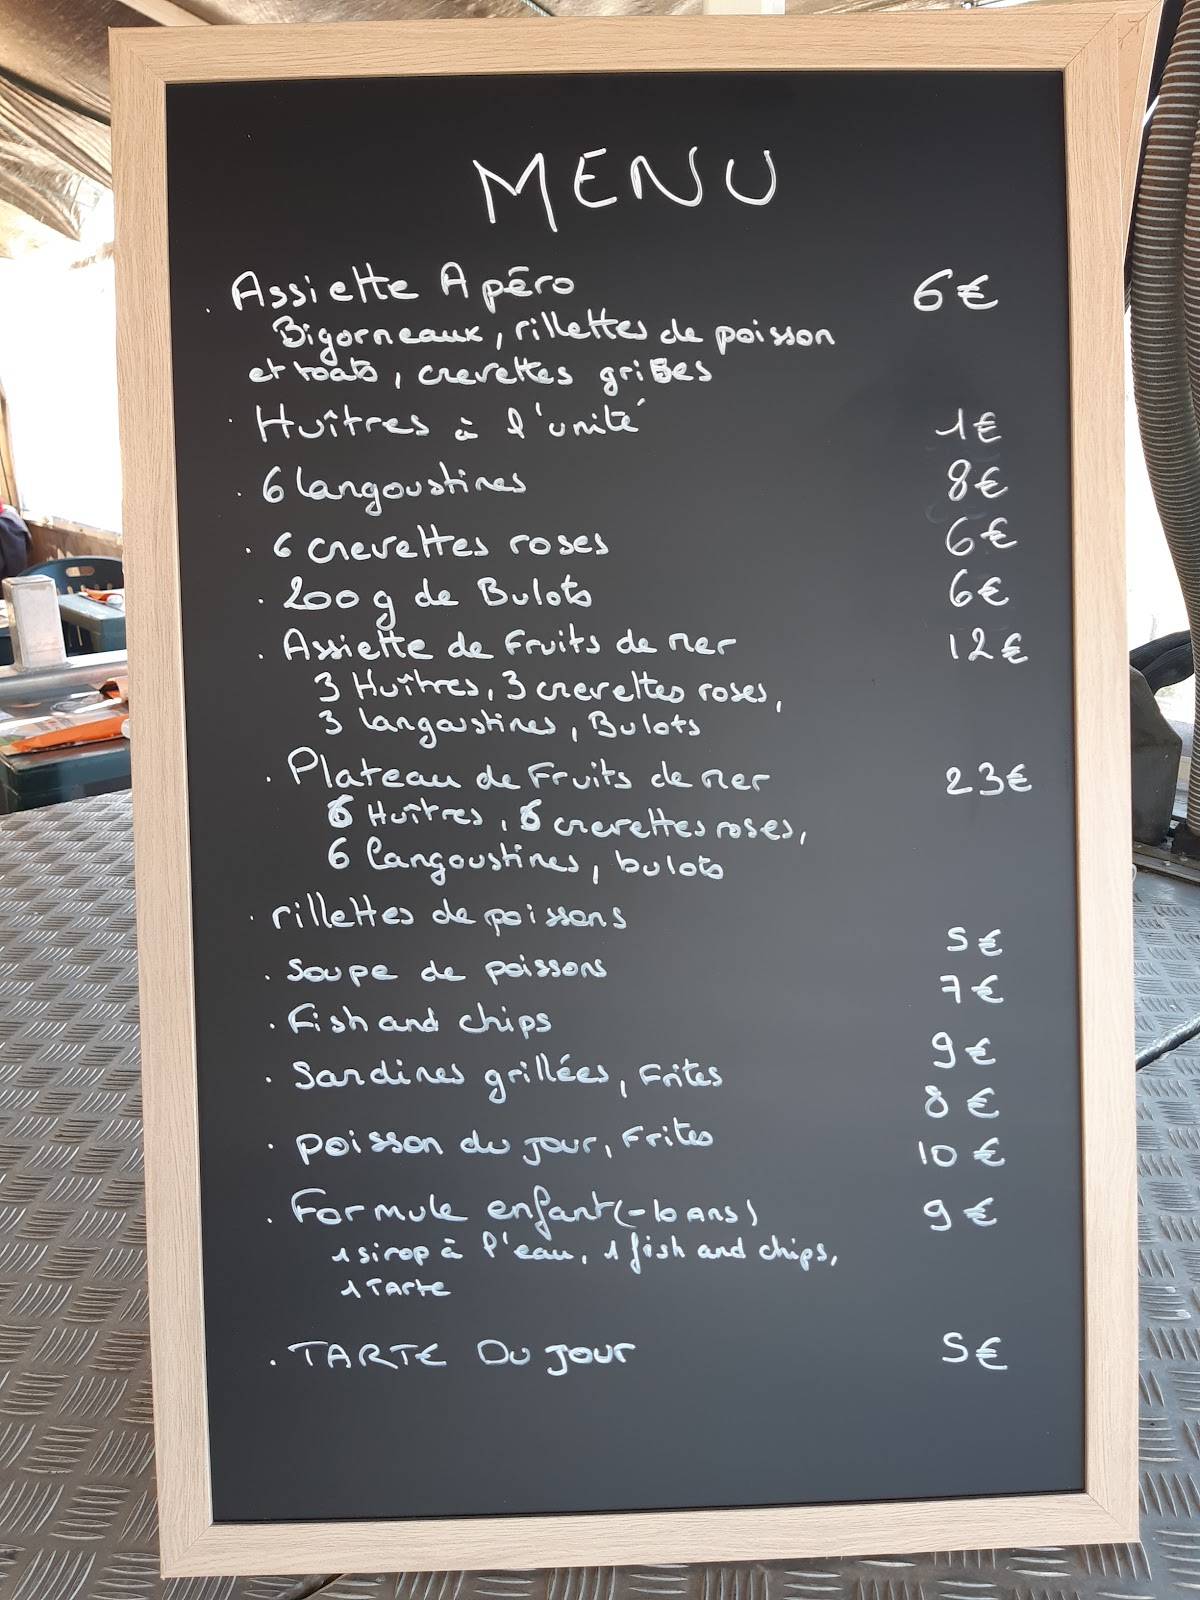 MENU
. Assiette Apéro 6€
Bigorneaux, rillettes de poisson
et toats, crevettes grises
. Huîtres à l'unité 1€
. 6 langoustines 8€
. 6 crevettes roses 6€
. 200g de Bulots 6€
. Assiette de Fruits de mer 12€
3 Huîtres, 3 crevettes roses,
3 langoustines, Bulots
. Plateau de Fruits de mer 23€
6 Huîtres, 6 crevettes roses,
6 langoustines, bulots
. rillettes de poissons 5€
. Soupe de poissons 7€
. Fish and chips 9€
. Sardines grillées, Frites 8€
. Poisson du jour, Frites 10€
. Formule enfant (-10 ANS) 9€
1 sirop à l'eau, 1 fish and chips,
1 Tarte
. TARTE DU JOUR 5€